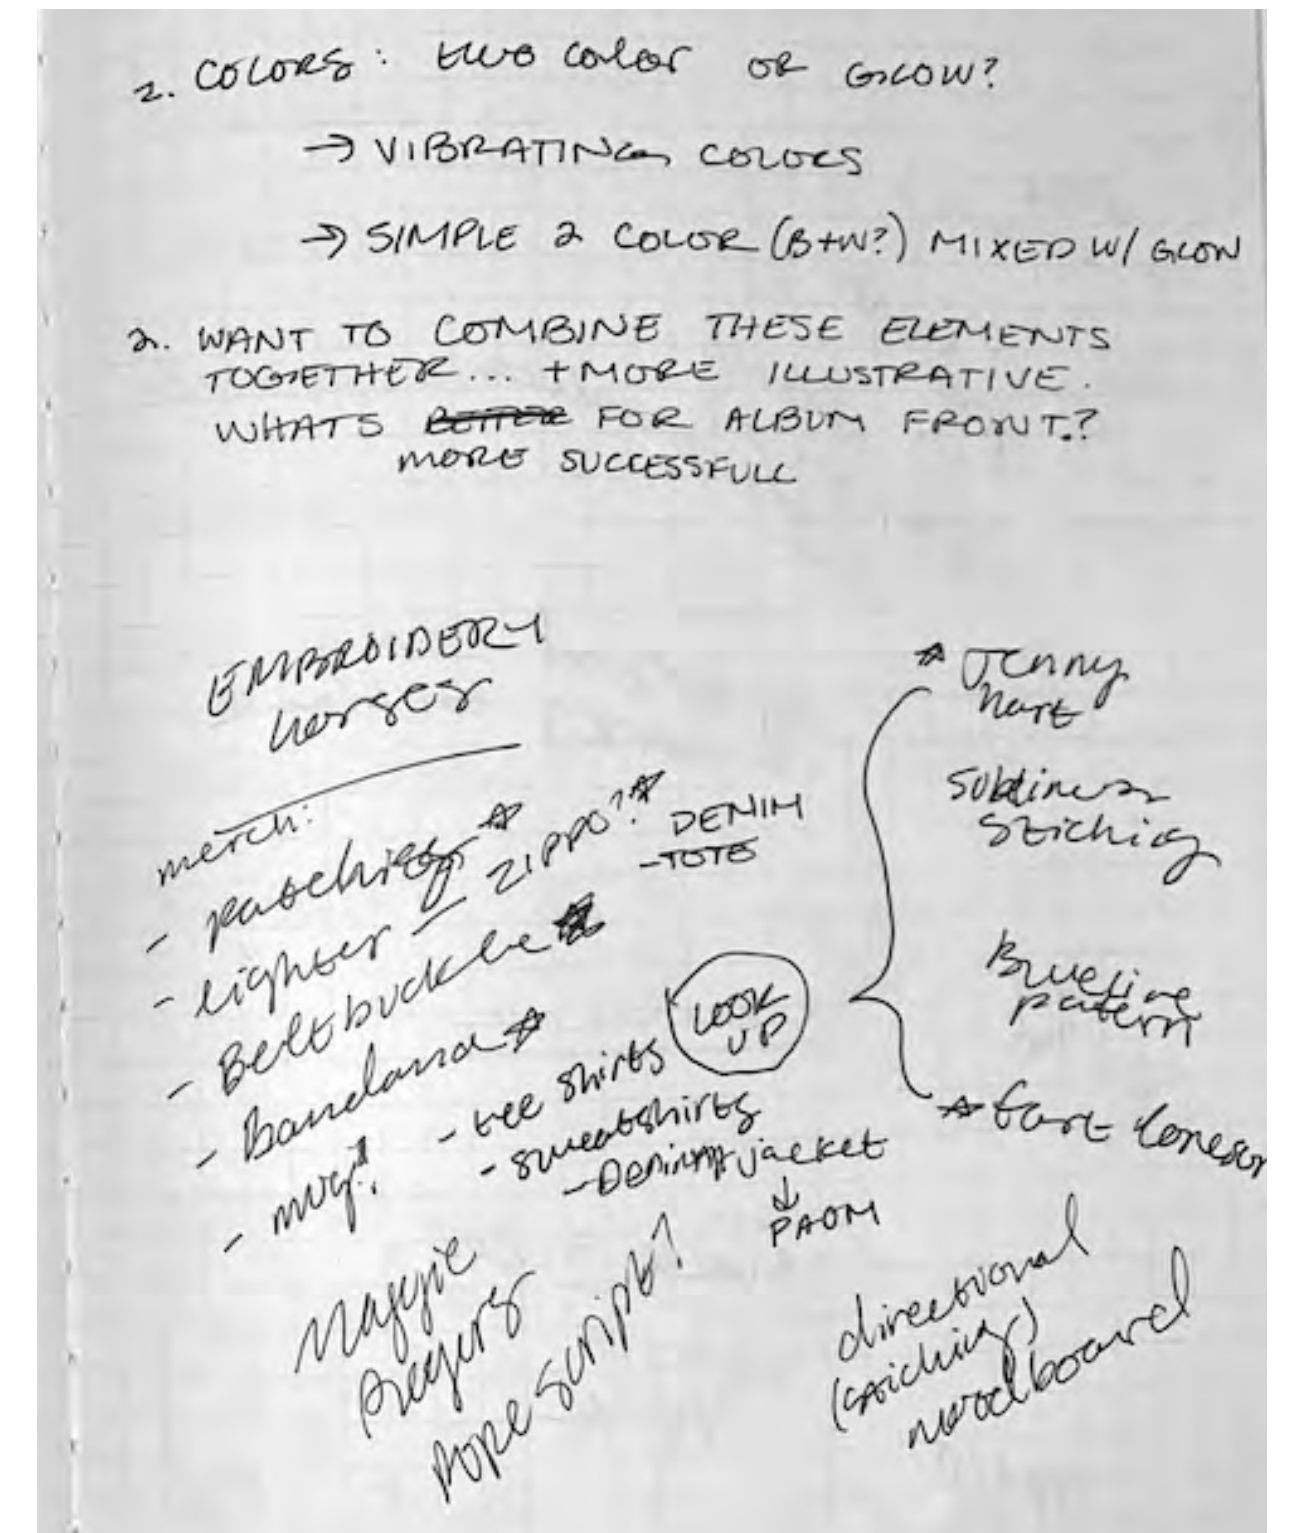 2. COLORS: two color OR GLOW?
→ VIBRATING COLORS
→ SIMPLE 2 COLOR (B+W?) MIXED W/ GLOW
2. WANT TO COMBINE THESE ELEMENTS
TOGETHER... + MORE ILLUSTRATIVE.
WHATS BETTER FOR ALBUM FRONT.?
MORE SUCCESSFULL
EMBROIDERY
horses
merch:
- patches
- lighter — ZIPPO?
DENIM
- TOTE
- Belt buckle
- Bandana
- mug?
- tee shirts
- sweatshirts
- Denim jacket
↓
PAOM
LOOK
UP
Jenny
hart
Sublime
Stiching
Blueline
patern
Fort Lonesom
Maggie
Rogers
rope script?
directional
(stiching)
moodboard